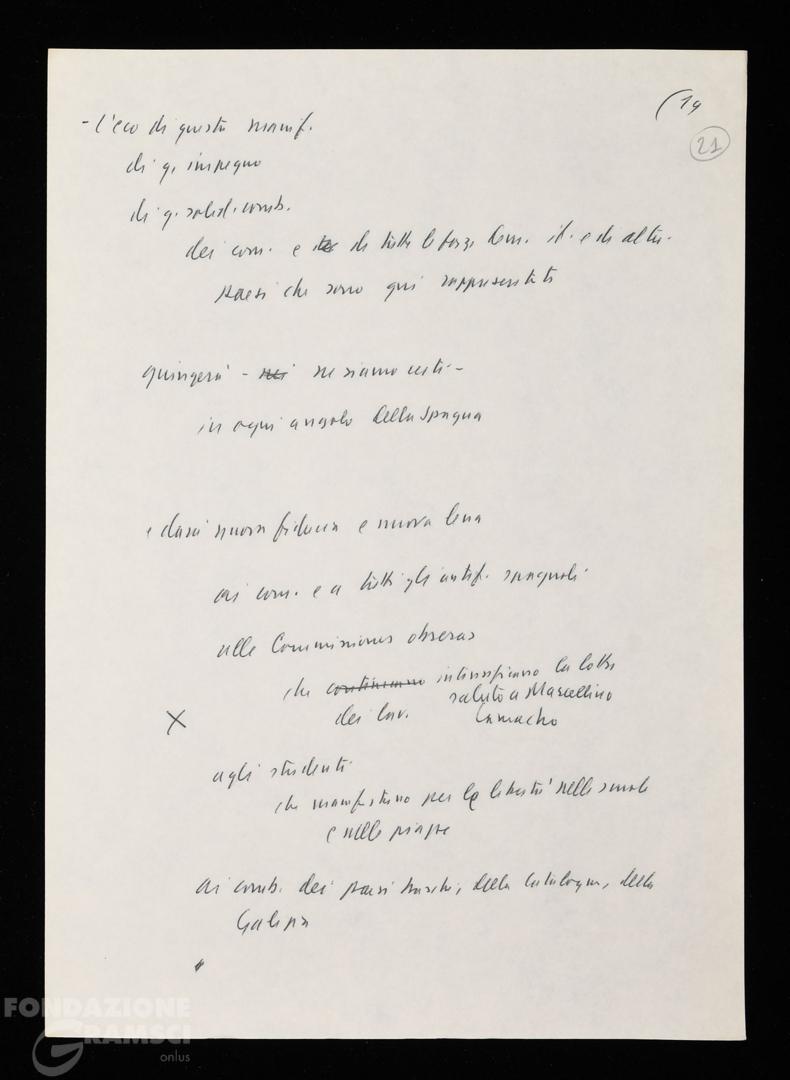 (19
21
- l'eco di questa manif.
di g. impegno
di g. solid. comb.
dei com. e di tutte le forze dem. it. e di altri
paesi che sono qui rappresentati
giungerà - ne siamo certi -
in ogni angolo della Spagna
e darà nuova fiducia e nuova lena
ai com. e a tutti gli antif. spagnoli
alle Commisiones obreras
che continuano intensificano la lotta
dei lav. saluto a Marcellino
Camacho
X
agli studenti
che manifestano per la libertà nelle scuole
e nelle piazze
ai comb. dei paesi baschi, della Catalogna, della
Galizia
FONDAZIONE
GRAMSCI
onlus